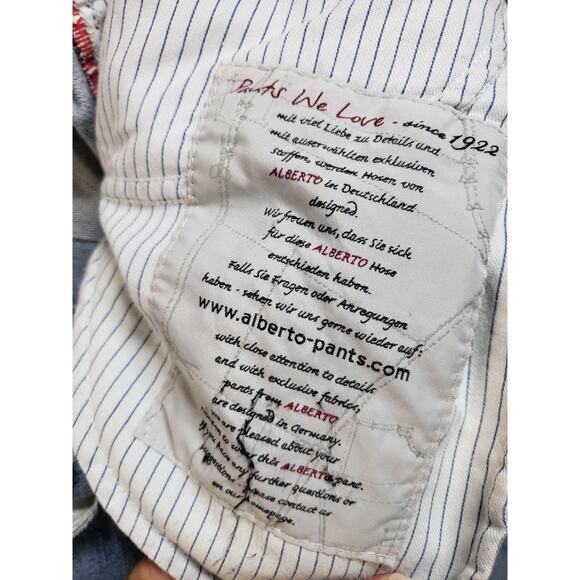 Pants We Love - since 1922
mit viel Liebe zu Details und
mit auserwählten exklusiven
stoffen, werden Hosen von
ALBERTO in Deutschland
designed.
Wir freuen uns, dass Sie sich
für diese ALBERTO Hose
entschieden haben.
Falls Sie Fragen oder Anregungen
haben - sehen wir uns gerne wieder auf:
www.alberto-pants.com
with close attention to details
and with exclusive fabrics,
pants from ALBERTO
are designed in Germany.
are pleased about your
to wear this ALBERTO pant.
any further questions or
please contact us
on our homepage.